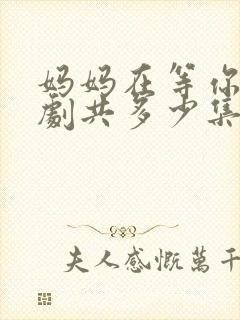 妈妈在等你
劇共多少集
夫人感慨萬千